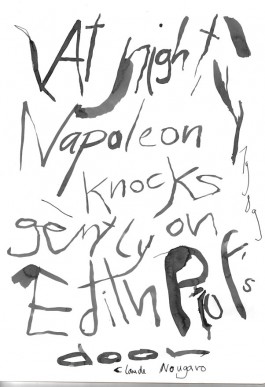 At night
Napoleon
knocks
gently on
Edith Piaf's
door
Claude Nougaro